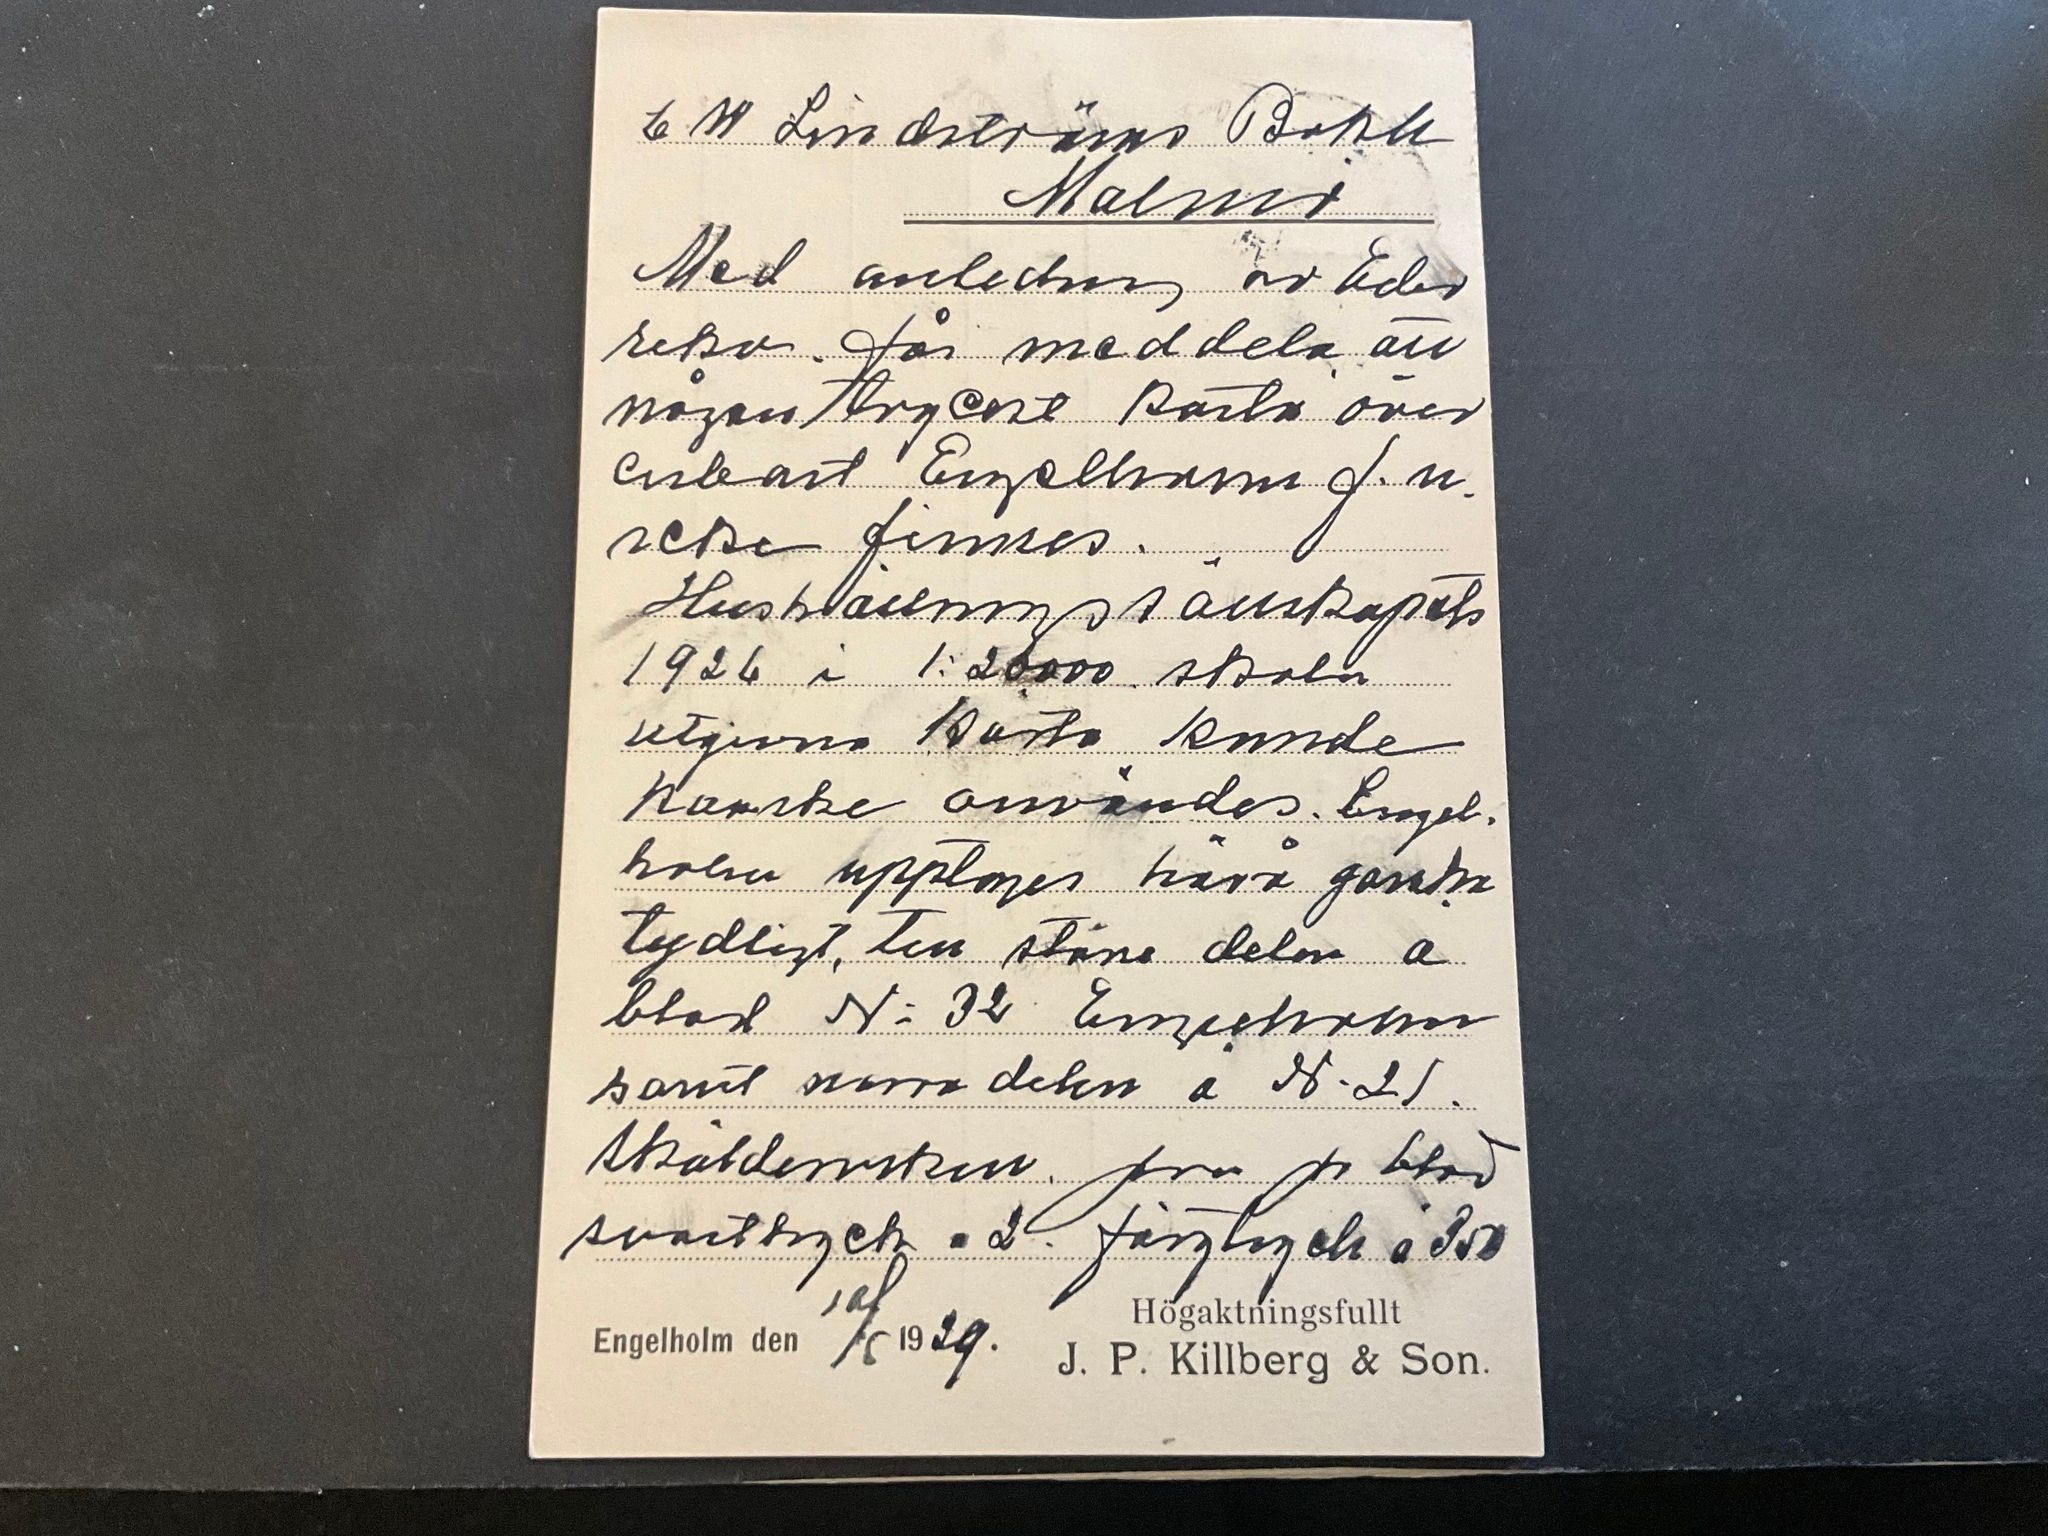 Lindströms Bokh
Malmö
Med anledning av Eder
rekv. får meddela att
någon tryckt karta över
enbart Engelholm f. n.
icke finnes.
Hushållningssällskapets
1926 i 1:20000 skala
utgivna karta kunde
kanske användes. Engel-
holm upptages härå ganska
tydligt, den större delen å
blad N: 32 Engelholm
samt norra delen å N. 21.
Skälderviken. pr blad
svarttryck a 2. färgtryck á 350
Engelholm den 1929.
Högaktningsfullt
J. P. Killberg & Son.